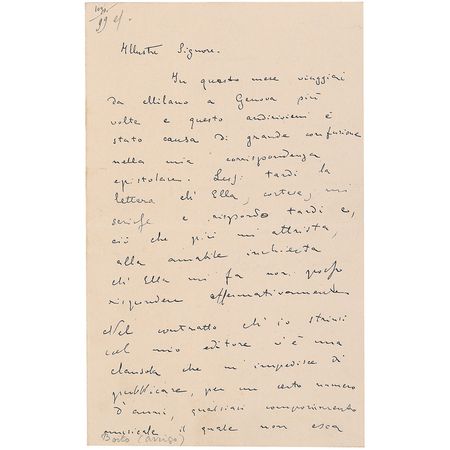 Illustre Signore.
In questo mese viaggiai
da Milano a Genova più
volte e questo andirivieni è
stato causa di grande confusione
nella mia corrispondenza
epistolare. Lessi tardi la
lettera ch' Ella, cortese, mi
scrisse e rispondo tardi e,
ciò che più mi attrista,
alla amabile inchiesta
ch' Ella mi fa non posso
rispondere affermativamente
Nel contratto ch' io strinsi
col mio editore v'è una
clausola che m'impedisce di
pubblicare, per un certo numero
d'anni, qualsiasi componimento
musicale il quale non esca
Boito (Arrigo)